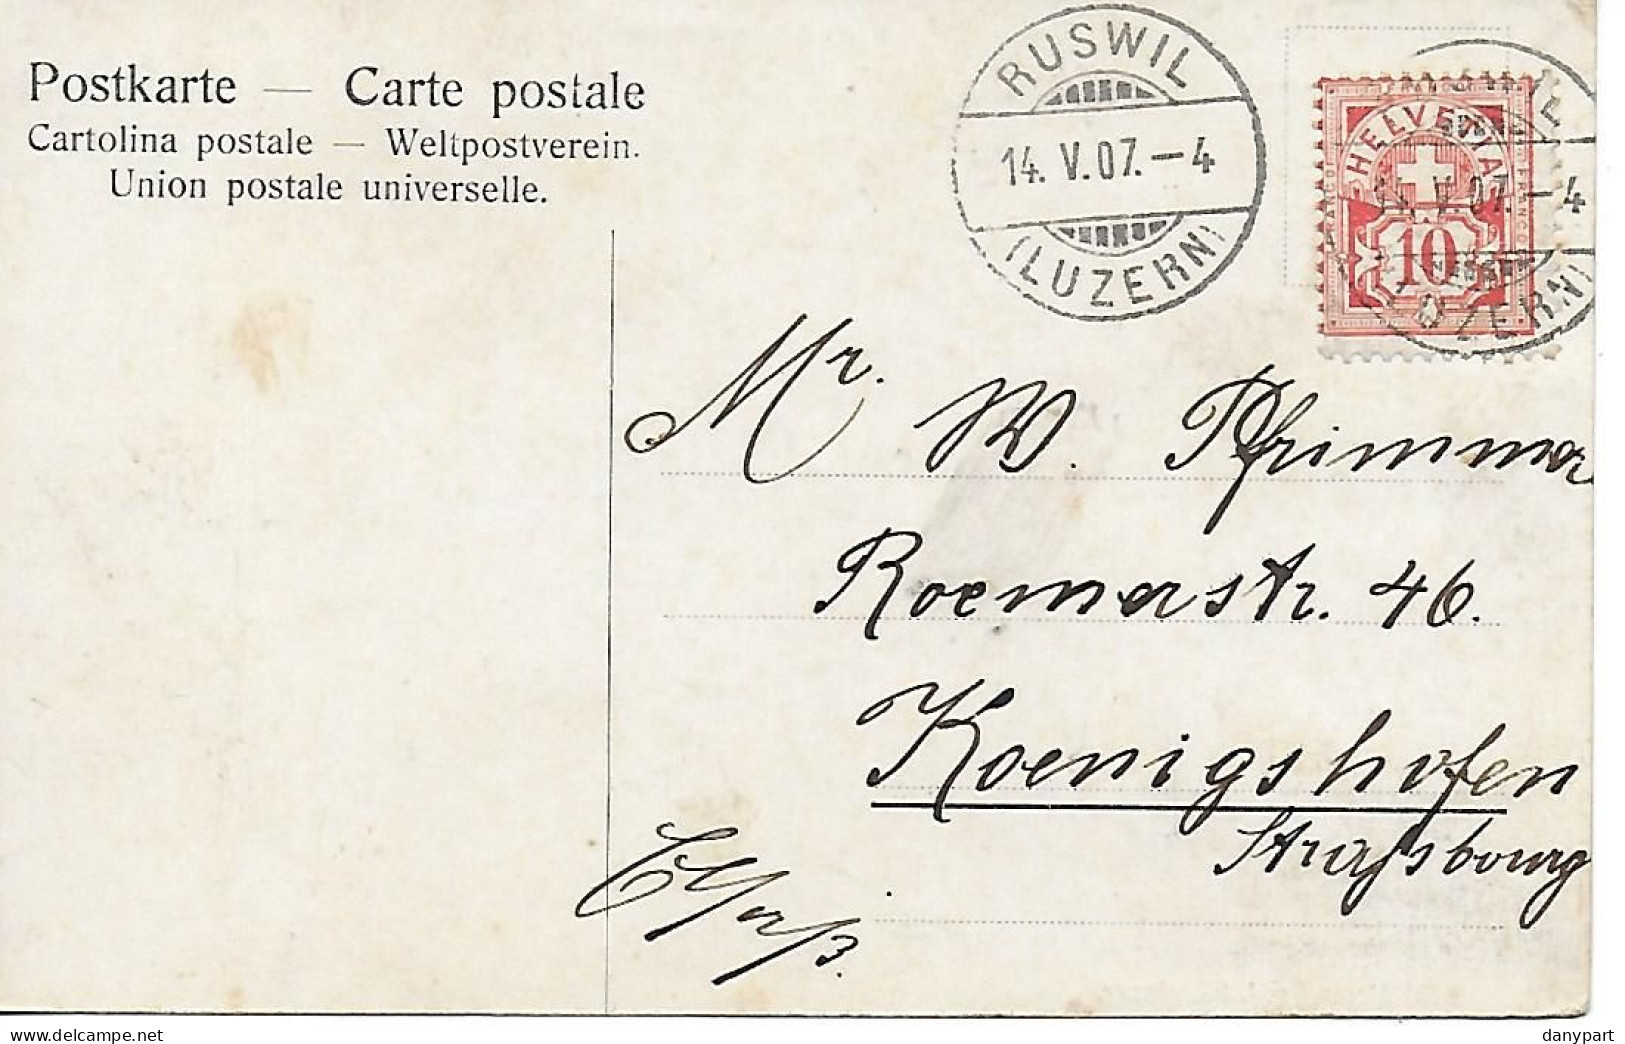 Postkarte — Carte postale
Cartolina postale — Weltpostverein.
Union postale universelle.
RUSWIL
14. V. 07. — 4
(LUZERN)
HELVETIA
FRANCO
10
14. V. 07. — 4
(LUZERN)
Mr. W. Pfrimmer
Roemerstr. 46.
Koenigshofen
Strassbourg
Elsass.
www.delcampe.net
danypart